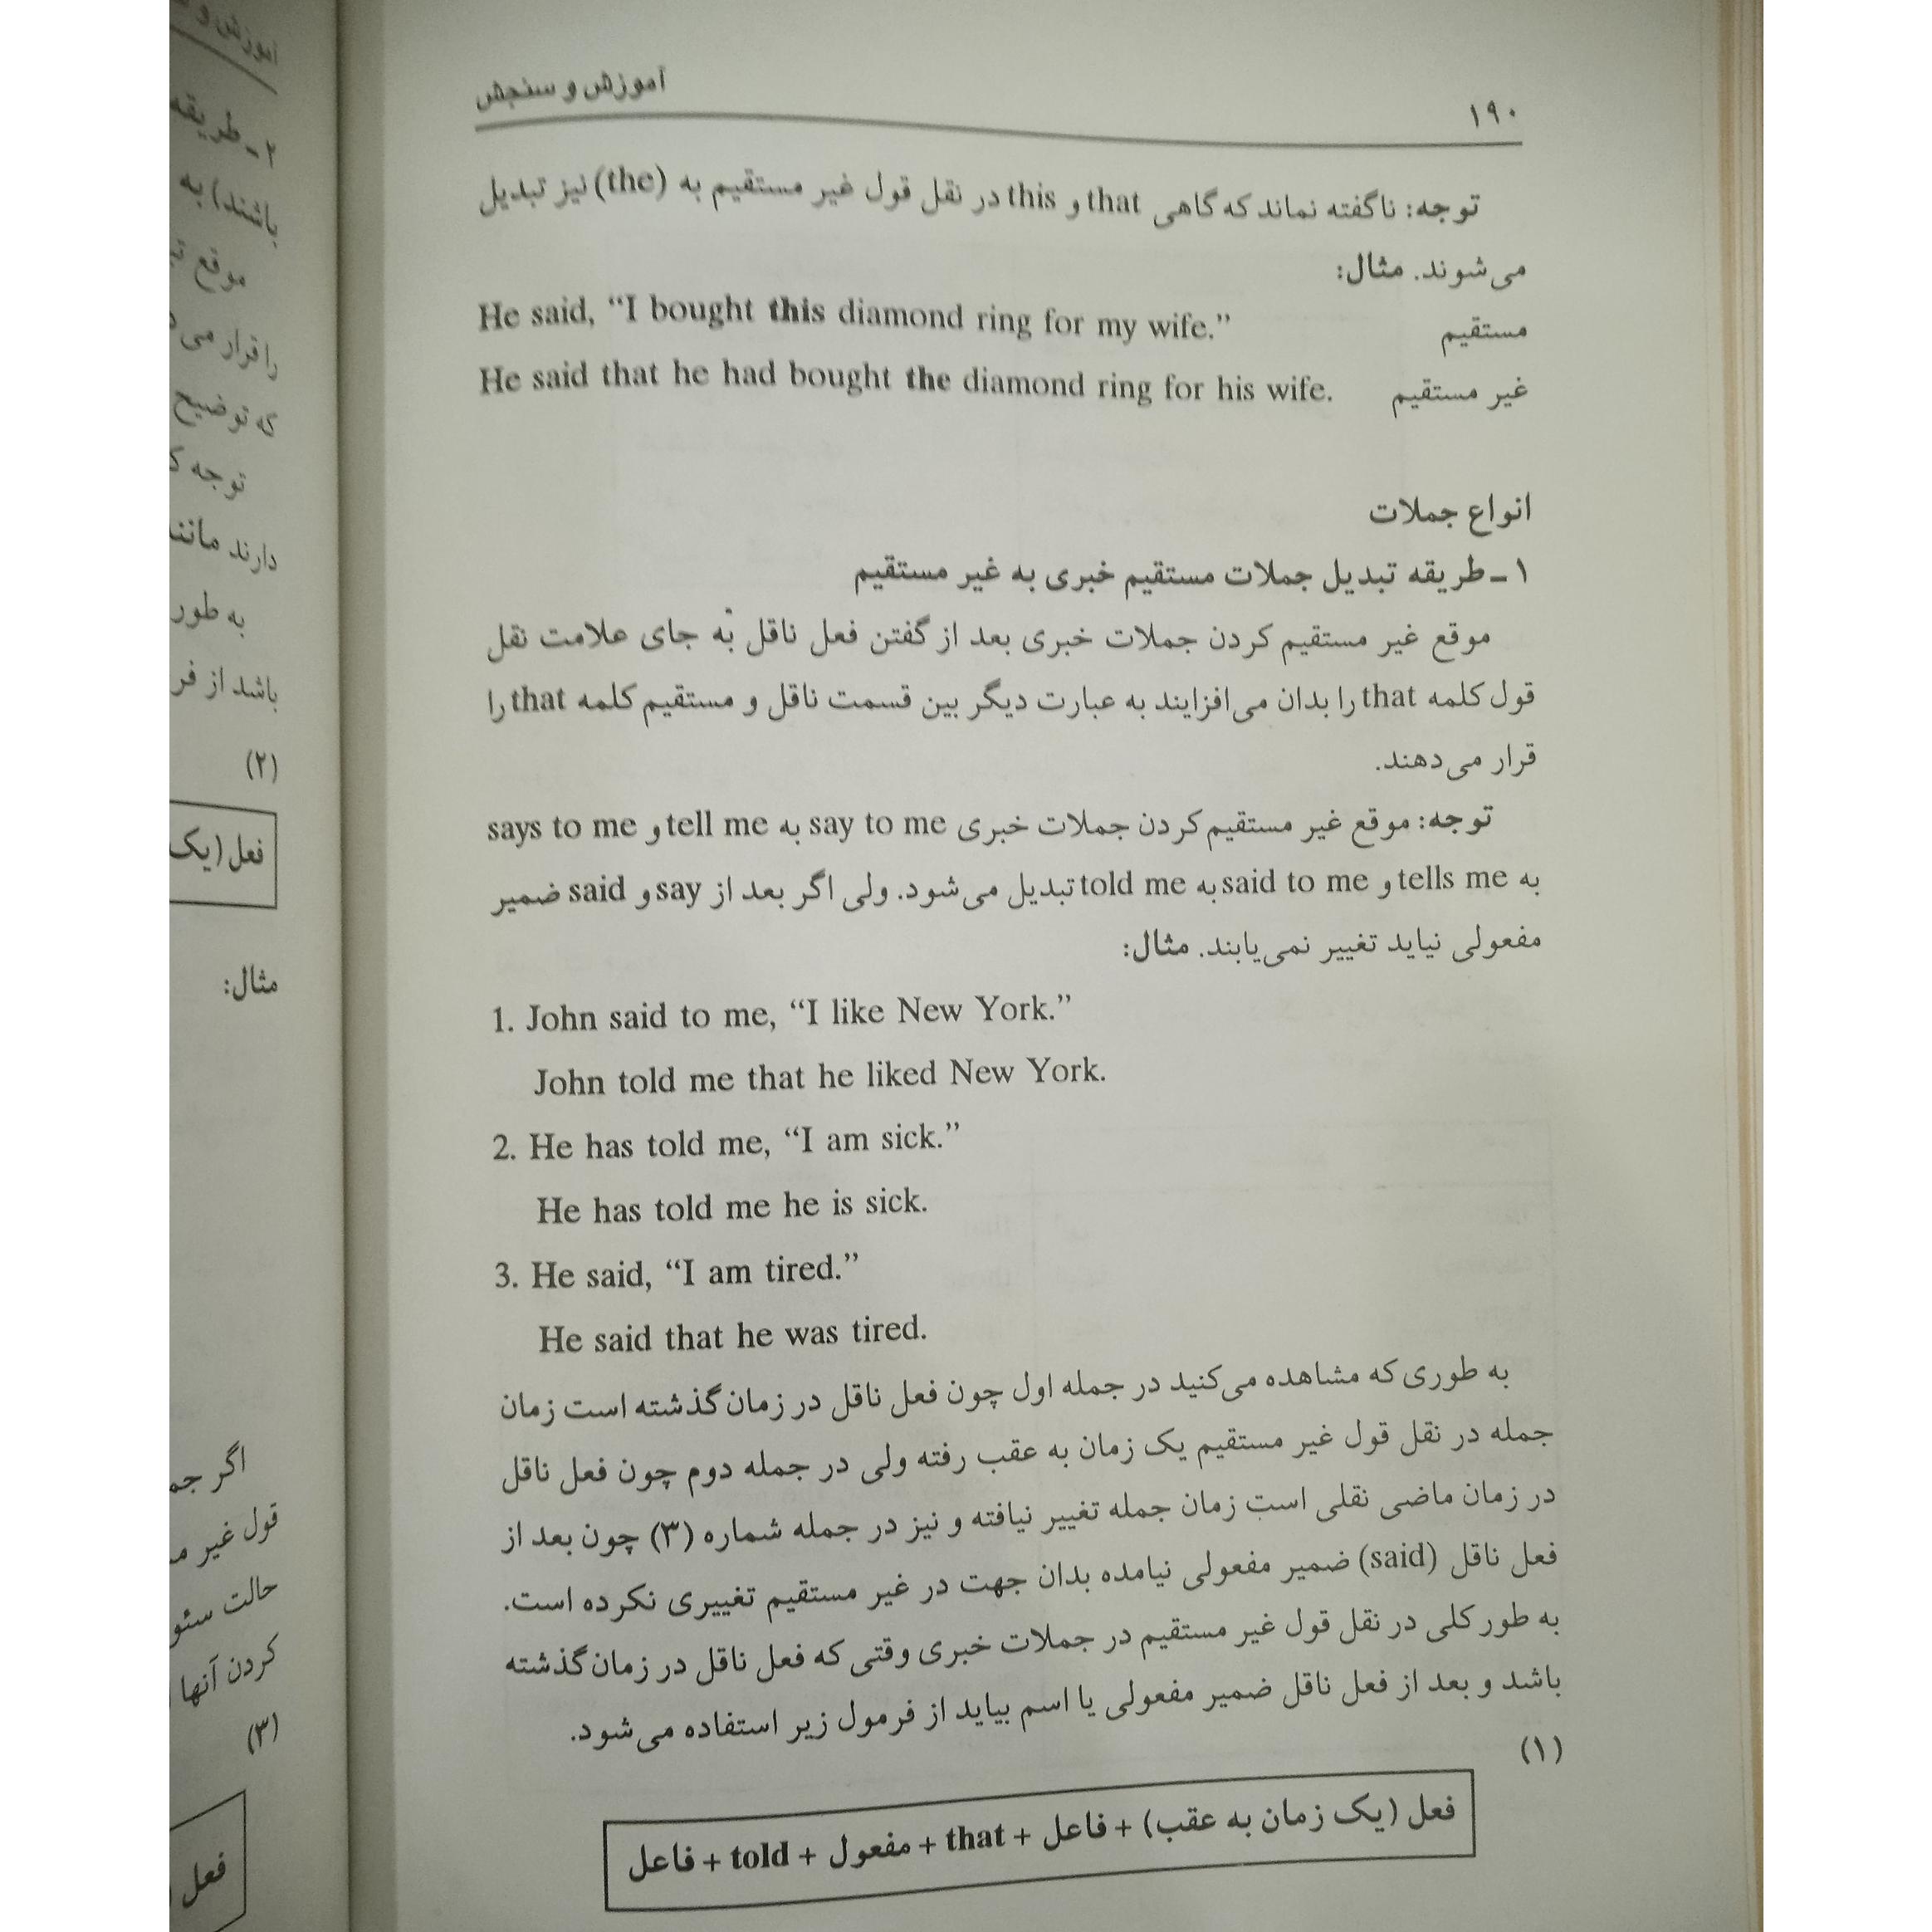 آموزش و سنجش
۱۹۰
توجه: ناگفته نماند که گاهی that و this در نقل قول غیر مستقیم به (the) نیز تبدیل
می‌شوند. مثال:
He said, “I bought this diamond ring for my wife.” مستقیم
He said that he had bought the diamond ring for his wife. غیر مستقیم
انواع جملات
۱ـ طریقه تبدیل جملات مستقیم خبری به غیر مستقیم
موقع غیر مستقیم کردن جملات خبری بعد از گفتن فعل ناقل به جای علامت نقل
قول کلمه that را بدان می‌افزایند به عبارت دیگر بین قسمت ناقل و مستقیم کلمه that را
قرار می‌دهند.
توجه: موقع غیر مستقیم کردن جملات خبری say to me به tell me و says to me
به tells me و said to me به told me تبدیل می‌شود. ولی اگر بعد از say و said ضمیر
مفعولی نیاید تغییر نمی‌یابند. مثال:
1. John said to me, “I like New York.”
John told me that he liked New York.
2. He has told me, “I am sick.”
He has told me he is sick.
3. He said, “I am tired.”
He said that he was tired.
به طوری که مشاهده می‌کنید در جمله اول چون فعل ناقل در زمان گذشته است زمان
جمله در نقل قول غیر مستقیم یک زمان به عقب رفته ولی در جمله دوم چون فعل ناقل
در زمان ماضی نقلی است زمان جمله تغییر نیافته و نیز در جمله شماره (۳) چون بعد از
فعل ناقل (said) ضمیر مفعولی نیامده بدان جهت در غیر مستقیم تغییری نکرده است.
به طور کلی در نقل قول غیر مستقیم در جملات خبری وقتی که فعل ناقل در زمان گذشته
باشد و بعد از فعل ناقل ضمیر مفعولی یا اسم بیاید از فرمول زیر استفاده می‌شود.
(۱)
فعل (یک زمان به عقب) + فاعل + that + مفعول + told + فاعل
آموزش و
۲ـ طریقه
باشند) به
موقع
را قرار می
که توضیح
توجه
دارند مانند
به طور
باشد از فر
(۲)
فعل (یک
مثال:
اگر جم
قول غیر
حالت سئو
کردن آنها
(۳)
فعل